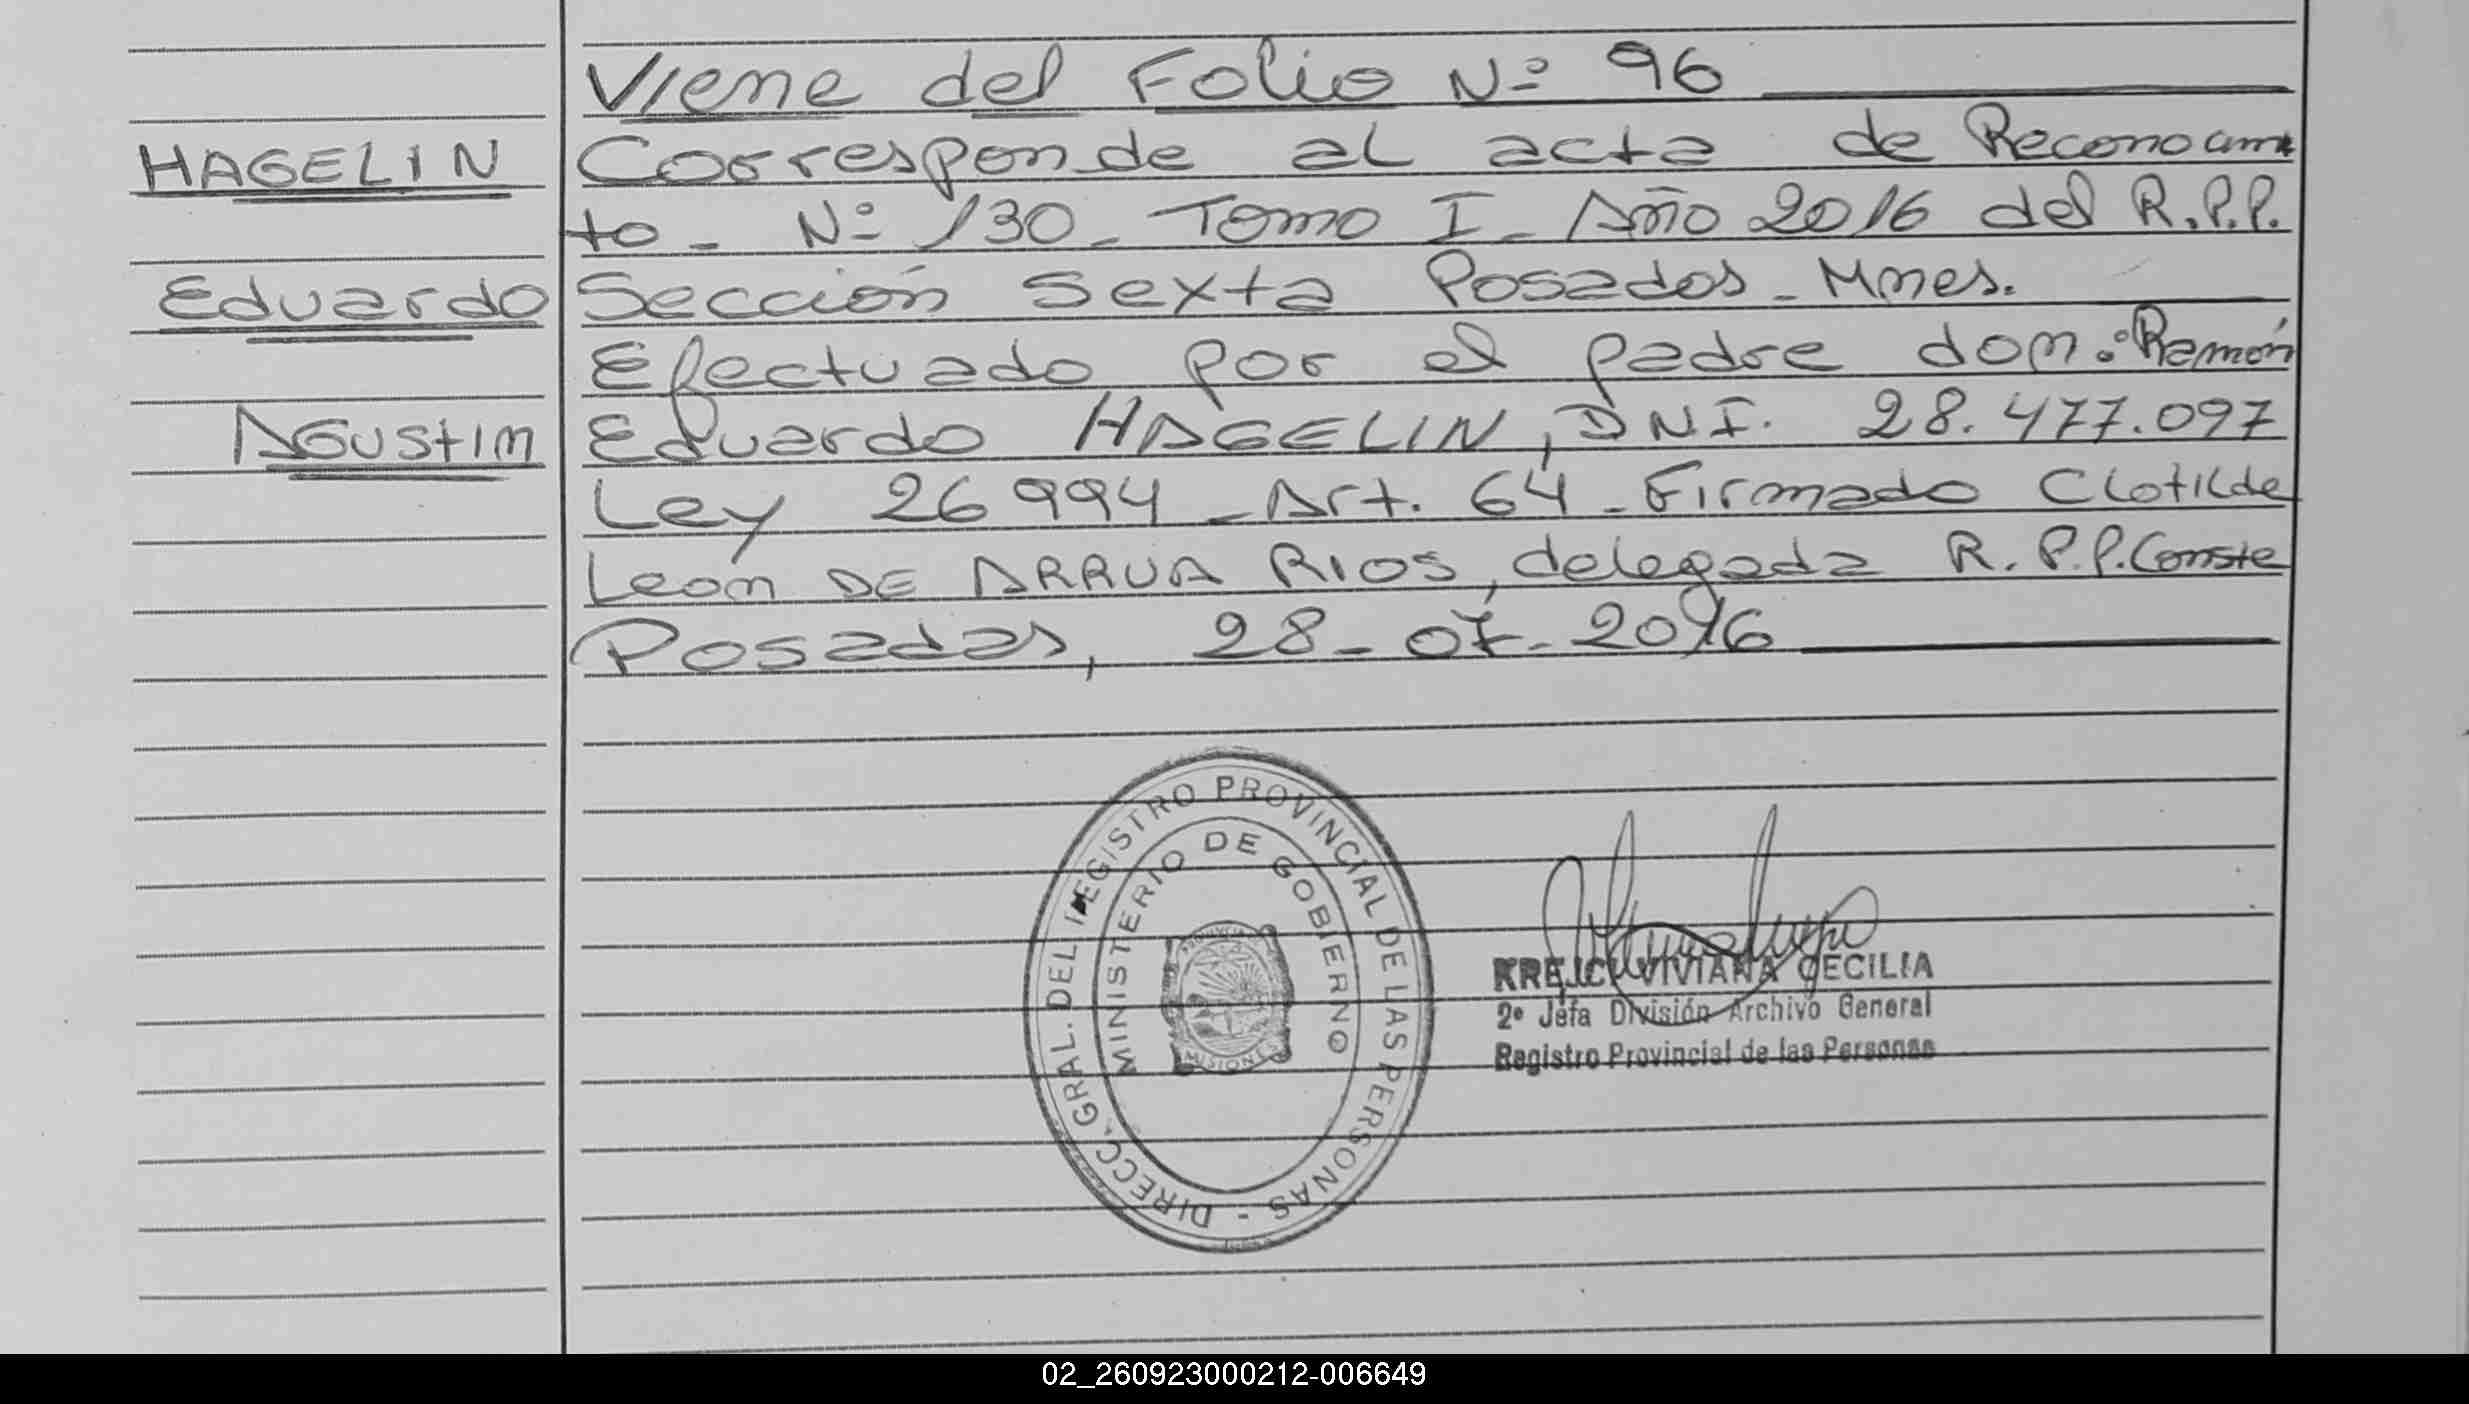 Viene del Folio Nº 96
HAGELIN
Corresponde al acta de Reconocimien
to - Nº 130 - Tomo I - Año 2016 del R.P.P.
Eduardo
Sección Sexta Posadas - Mnes.
Efectuado por el padre don: Ramón
Agustin
Eduardo HAGELIN, DNI. 28.477.097
Ley 26994 - Art. 64 - Firmado Clotilde
Leon DE ARRUA RIOS, delegada R.P.P. Conste
Posadas, 28-07-2016
DIRECC. GRAL. DEL REGISTRO PROVINCIAL DE LAS PERSONAS -
MINISTERIO DE GOBIERNO
PROVINCIA
MISIONES
KREJCI VIVIANA CECILIA
2º Jefa División Archivo General
Registro Provincial de las Personas
02_260923000212-006649